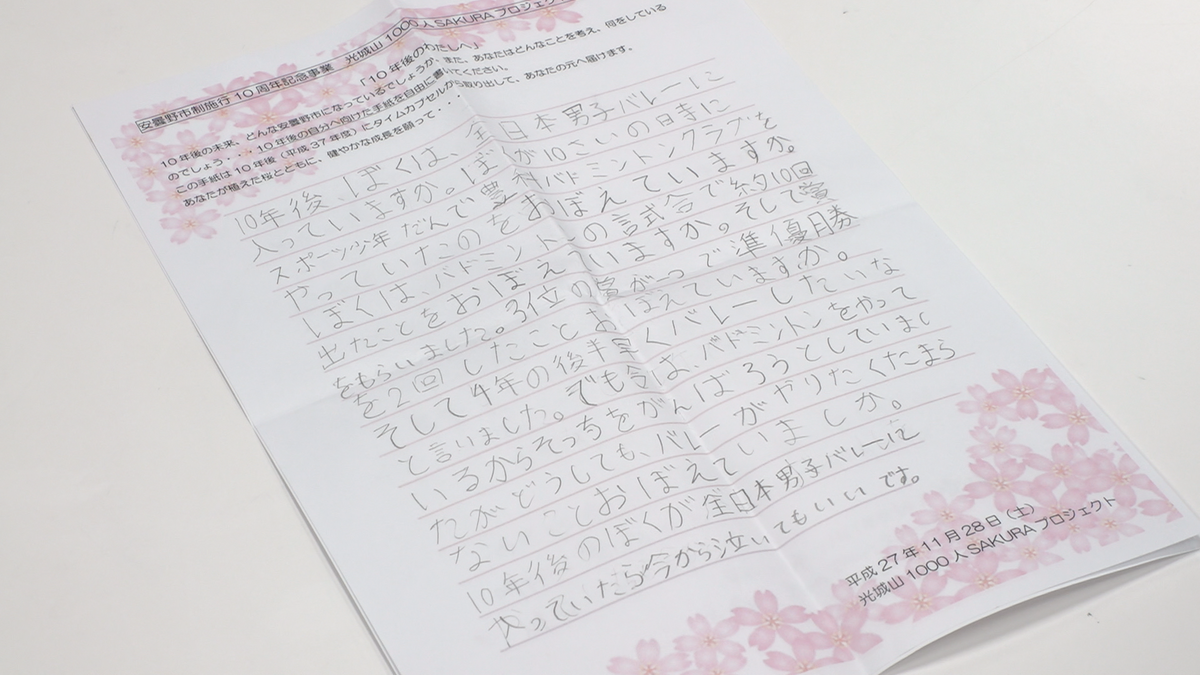 安曇野市制施行10周年記念事業　光城山1000人SAKURAプロジェクト
「10年後のわたしへ」
10年後の未来、どんな安曇野市になっているでしょうか。また、あなたはどんなことを考え、何をしている
のでしょう・・・10年後の自分へ向けた手紙を自由に書いてください。
この手紙は10年後（平成37年度）にタイムカプセルから取り出して、あなたの元へ届けます。
あなたが植えた桜とともに、健やかな成長を願って・・・
10年後、ぼくは、全日本男子バレーに
入っていますか。ぼくが10さいの日時に
スポーツ少年だんで豊科バドミントンクラブを
やっていたのをおぼえていますか。
ぼくは、バドミントンの試合で約10回
出たことをおぼえていますか。そして賞
をもらいました。3位の賞が一つで準優勝
を2回したことおぼえていますか。
そして4年の後半早くバレーしたいな
と言いました。でも今は、バドミントンをやって
いるからそっちをがんばろうとしていまし
たがどうしても、バレーがやりたくたまら
ないことおぼえていましか。
10年後のぼくが全日本男子バレーに
入っていたら今から泣いてもいいです。
平成27年11月28日（土）
光城山1000人SAKURAプロジェクト